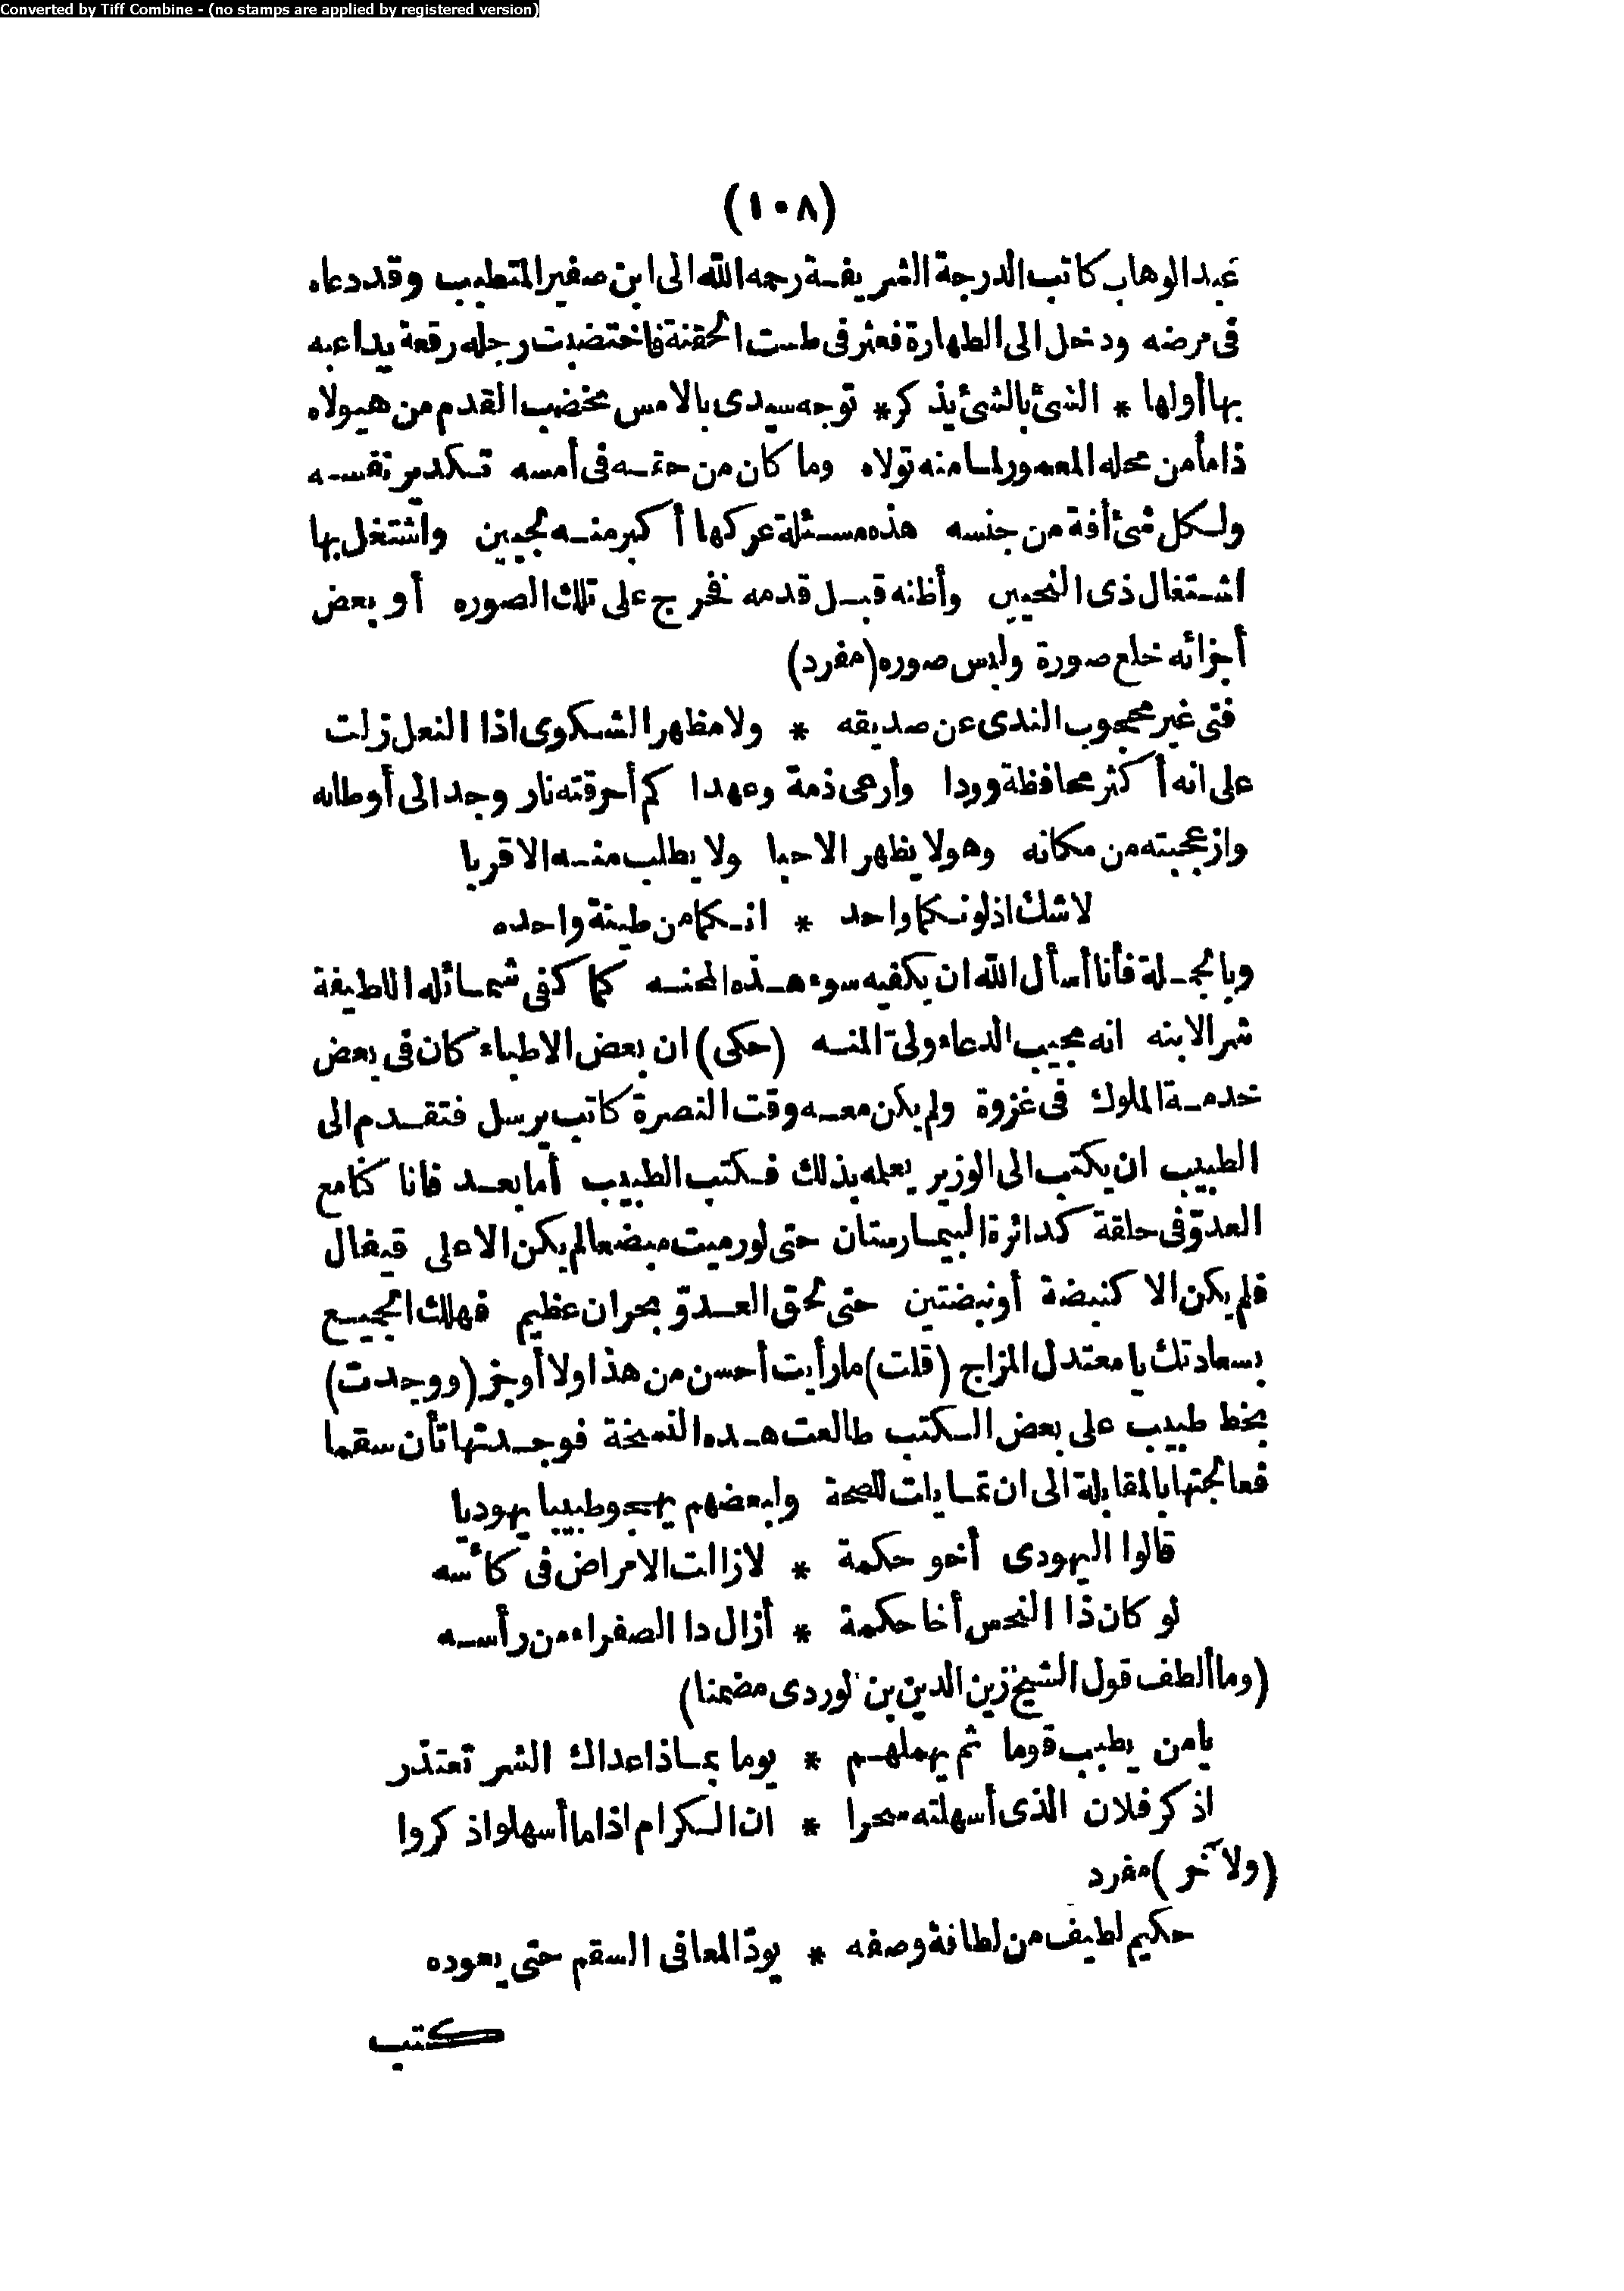 Converted by Tiff Combine - (no stamps are applied by registered version)
(١٠٨)
عبد الوهاب كاتب الدرجة الشريفة رحمه الله الى ابن صغير المتطبب وقد دعاه
فى مرضه ودخل الى الطهارة فعثر فى طست الحقنة فاختضبت رجله رقعة يداعبه
بها أولها * الشئ بالشئ يذكر * توجه سيدى بالامس مخضب القدم من هيولاه
ذاما من محله المعمور لما منه تولاه وما كان من حقه فى أمسه تكدير نفسه
ولكل شئ أفة من جنسه هذه مسئلة عركها أكبر منه لجيين واشتغل بها
اشتغال ذى النحيين وأظنه قبل قدمه نخرج على تلك الصوره أو بعض
أجزائه خلع صورة ولبس صوره (مفرد)
فتى غير محجوب الندى عن صديقه * ولا مظهر الشكوى اذا النعل زلت
على انه أكثر محافظة وودا وأرعى ذمة وعهدا كم أحرقته نار وجد الى أوطانه
وازعجبته من مكانه وهو لا يظهر الاحبا ولا يطلب منه الاقربا
لاشك اذ لونكما واحد * انكما من طينة واحده
وبالجملة فأنا أسأل الله ان يكفيه سوء هذه المحنه كما كفى شمائله اللطيفة
شر الابنه انه مجيب الدعاء ولى المنه (حكى) ان بعض الاطباء كان فى بعض
خدمة الملوك فى غزوة ولم يكن معه وقت النصرة كاتب يرسل فتقدم الى
الطبيب ان يكتب الى الوزير يعلمه بذلك فكتب الطبيب أما بعد فانا كنا مع
العدوّ فى حلقة كدائرة البيمارستان حتى لو رميت مبضعا لم يكن الا على قيفال
فلم يكن الا كنبضة أو نبضتين حتى لحق العدوّ بحران عظيم فهلك الجميع
بسعادتك يا معتدل المزاج (قلت) ما رأيت أحسن من هذا ولا أوجز (ووجدت)
بخط طبيب على بعض الكتب طالعت هذه النسخة فوجدتها تأن سقما
فعالجتها بالمقابلة الى ان تماسات للصحة ولبعضهم يهجو طبيبا يهوديا
قالوا اليهودى أخو حكمة * لا زالت الامراض فى كأسه
لو كان ذا النحس أخا حكمة * أزال دا الصفراء من رأسه
(وما ألطف قول الشيخ زين الدين بن لوردى مضمنا)
يا من يطبب قوما ثم يهملهم * يوما بماذا عداك الشر تعتذر
اذكر فلان الذى أسهلته سحرا * ان الكرام اذا ما أسهلوا ذكروا
(ولآخر) مفرد
حكيم لطيف من لطافة وصفه * يودّ المعافى السقم حتى يعوده
كتب